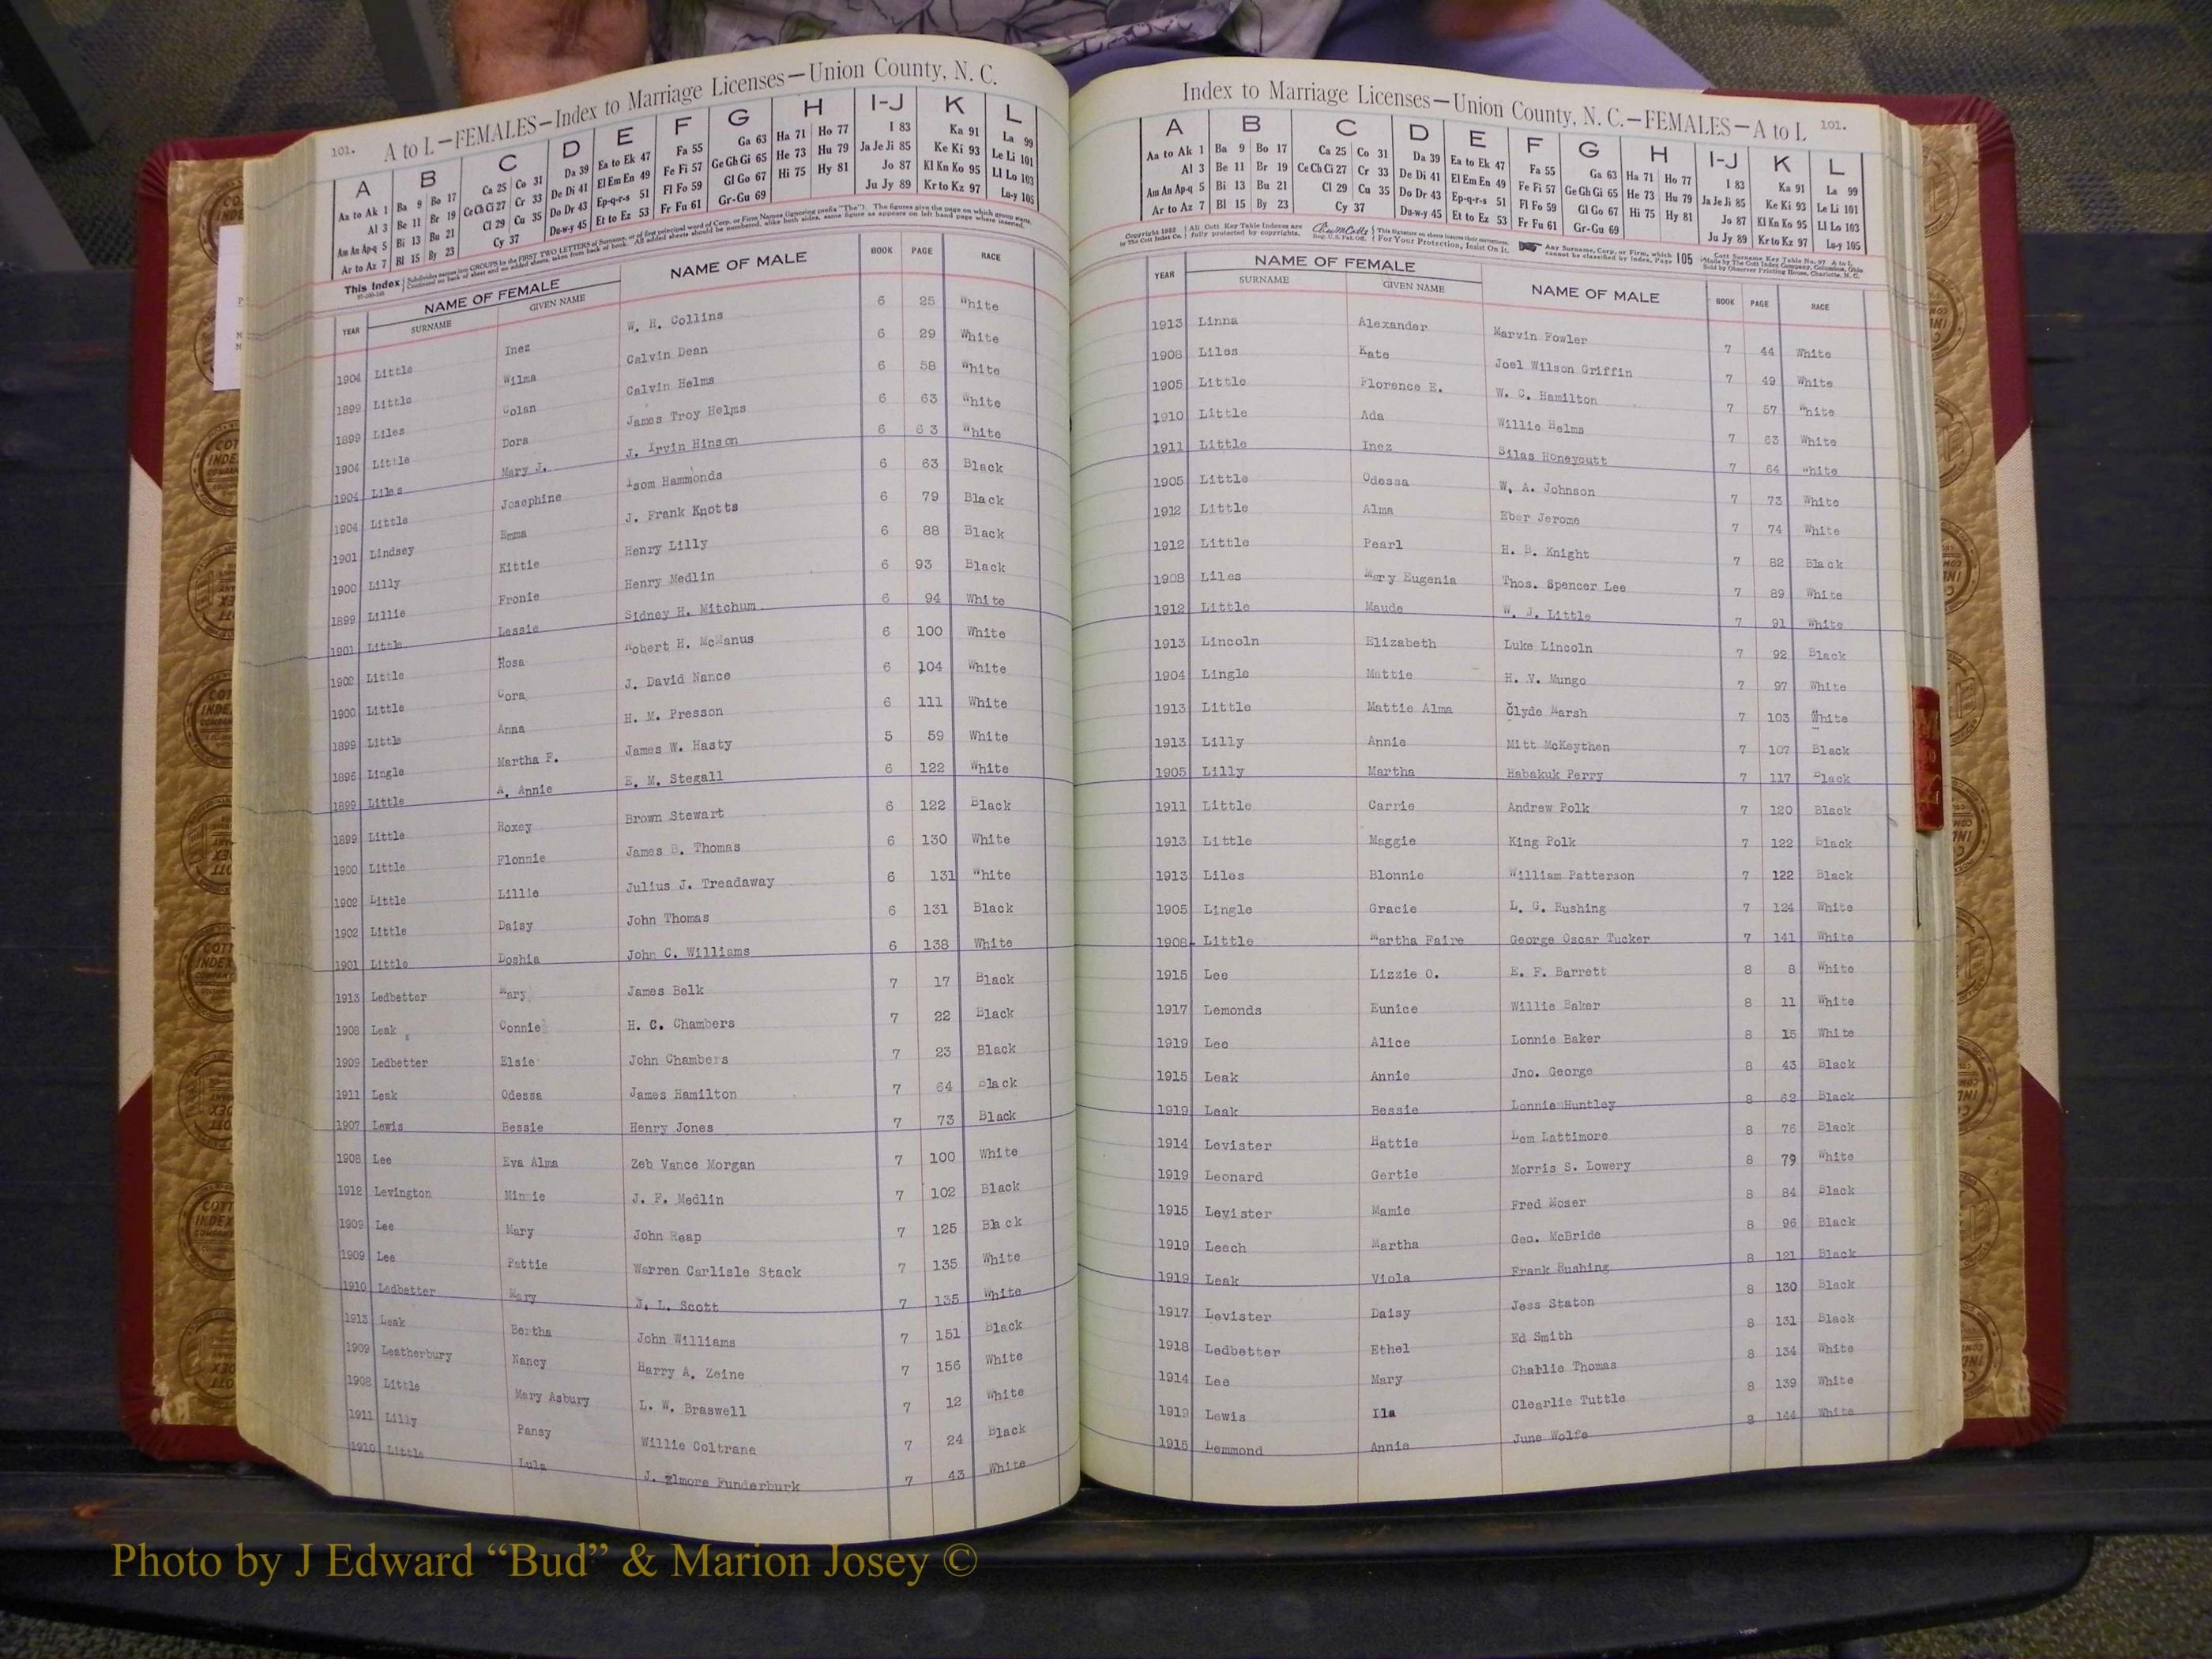 101. A to L—FEMALES—Index to Marriage Licenses—Union County, N. C.
A B C D E F G H I-J K L
Aa to Ak 1 Ba 9 Bo 17 Ca 25 Co 31 Da 39 Ea to Ek 47 Fa 55 Ga 63 Ha 71 Ho 77 I 83 Ka 91 La 99
Al 3 Be 11 Br 19 Ce Ch Ci 27 Cr 33 De Di 41 El Em En 49 Fe Fi 57 Ge Gh Gi 65 He 73 Hu 79 Ja Je Ji 85 Ke Ki 93 Le Li 101
Am An Ap-q 5 Bi 13 Bu 21 Cl 29 Cu 35 Do Dr 43 Ep-q-r-s 51 Fl Fo 59 Gl Go 67 Hi 75 Hy 81 Jo 87 Kl Kn Ko 95 Ll Lo 103
Ar to Az 7 Bl 15 By 23 Cy 37 Du-w-y 45 Et to Ez 53 Fr Fu 61 Gr-Gu 69 Ju Jy 89 Kr to Kz 97 Lu-y 105
This Index
YEAR NAME OF FEMALE SURNAME GIVEN NAME NAME OF MALE BOOK PAGE RACE
1904 Little Inez W. H. Collins 6 25 White
1899 Little Wilma Calvin Dean 6 29 White
1899 Liles Colan Calvin Helms 6 58 White
1904 Little Dora James Troy Helms 6 63 White
1904 Liles Mary J. J. Irvin Hinson 6 63 White
1904 Little Josephine Isom Hammonds 6 63 Black
1901 Lindsey Emma J. Frank Knotts 6 79 Black
1900 Lilly Kittie Henry Lilly 6 88 Black
1899 Lillie Fronie Henry Medlin 6 93 Black
1901 Little Lessie Sidney H. Mitchum 6 94 White
1902 Little Rosa Robert H. McManus 6 100 White
1900 Little Cora J. David Nance 6 104 White
1899 Little Anna H. M. Presson 6 111 White
1896 Lingle Martha F. James W. Hasty 5 59 White
1899 Little A. Annie E. M. Stegall 6 122 White
1899 Little Roxey Brown Stewart 6 122 Black
1900 Little Flonnie James B. Thomas 6 130 White
1902 Little Lillie Julius J. Treadaway 6 131 White
1902 Little Daisy John Thomas 6 131 Black
1901 Little Doshia John C. Williams 6 138 White
1913 Ledbetter Mary James Belk 7 17 Black
1908 Leak Connie H. C. Chambers 7 22 Black
1909 Ledbetter Elsie John Chambers 7 23 Black
1911 Leak Odessa James Hamilton 7 64 Black
1907 Lewis Bessie Henry Jones 7 73 Black
1908 Lee Eva Alma Zeb Vance Morgan 7 100 White
1912 Levington Minnie J. F. Medlin 7 102 Black
1909 Lee Mary John Reap 7 125 Black
1909 Lee Pattie Warren Carlisle Stack 7 135 White
1910 Ledbetter Mary J. L. Scott 7 135 White
1913 Leak Bertha John Williams 7 151 Black
1909 Leatherbury Nancy Harry A. Zeine 7 156 White
1908 Little Mary Asbury L. W. Braswell 7 12 White
1911 Lilly Pansy Willie Coltrane 7 24 Black
1910 Little Lula J. Elmore Funderburk 7 43 White
Index to Marriage Licenses—Union County, N. C.—FEMALES—A to L 101.
A B C D E F G H I-J K L
Aa to Ak 1 Ba 9 Bo 17 Ca 25 Co 31 Da 39 Ea to Ek 47 Fa 55 Ga 63 Ha 71 Ho 77 I 83 Ka 91 La 99
Al 3 Be 11 Br 19 Ce Ch Ci 27 Cr 33 De Di 41 El Em En 49 Fe Fi 57 Ge Gh Gi 65 He 73 Hu 79 Ja Je Ji 85 Ke Ki 93 Le Li 101
Am An Ap-q 5 Bi 13 Bu 21 Cl 29 Cu 35 Do Dr 43 Ep-q-r-s 51 Fl Fo 59 Gl Go 67 Hi 75 Hy 81 Jo 87 Kl Kn Ko 95 Ll Lo 103
Ar to Az 7 Bl 15 By 23 Cy 37 Du-w-y 45 Et to Ez 53 Fr Fu 61 Gr-Gu 69 Ju Jy 89 Kr to Kz 97 Lu-y 105
YEAR NAME OF FEMALE SURNAME GIVEN NAME NAME OF MALE BOOK PAGE RACE
1913 Linna Alexander Marvin Fowler 7 44 White
1908 Liles Kate Joel Wilson Griffin 7 49 White
1905 Little Florence E. W. C. Hamilton 7 57 White
1910 Little Ada Willie Helms 7 63 White
1911 Little Inez Silas Honeycutt 7 64 White
1905 Little Odessa W. A. Johnson 7 73 White
1912 Little Alma Eber Jerome 7 74 White
1912 Little Pearl H. B. Knight 7 82 Black
1908 Liles Mary Eugenia Thos. Spencer Lee 7 89 White
1912 Little Maude W. J. Little 7 91 White
1913 Lincoln Elizabeth Luke Lincoln 7 92 Black
1904 Lingle Mattie H. V. Mungo 7 97 White
1913 Little Mattie Alma Clyde Marsh 7 103 White
1913 Lilly Annie Mitt McKeythen 7 107 Black
1905 Lilly Martha Habakuk Perry 7 117 Black
1911 Little Carrie Andrew Polk 7 120 Black
1913 Little Maggie King Polk 7 122 Black
1913 Liles Blonnie William Patterson 7 122 Black
1905 Lingle Gracie L. G. Rushing 7 124 White
1908 Little Martha Faire George Oscar Tucker 7 141 White
1915 Lee Lizzie O. E. F. Barrett 8 8 White
1917 Lemonds Eunice Willie Baker 8 11 White
1919 Lee Alice Lonnie Baker 8 15 White
1915 Leak Annie Jno. George 8 43 Black
1919 Leak Bessie Lonnie Huntley 8 62 Black
1914 Levister Hattie Lem Lattimore 8 76 Black
1919 Leonard Gertie Morris S. Lowery 8 79 White
1915 Levister Mamie Fred Moser 8 84 Black
1919 Leech Martha Geo. McBride 8 96 Black
1919 Leak Viola Frank Rushing 8 121 Black
1917 Levister Daisy Jess Staton 8 130 Black
1918 Ledbetter Ethel Ed Smith 8 131 Black
1914 Lee Mary Charlie Thomas 8 134 White
1919 Lewis Ila Clearlie Tuttle 8 139 White
1915 Lemmond Annie June Wolfe 8 144 White
Photo by J Edward “Bud” & Marion Josey ©